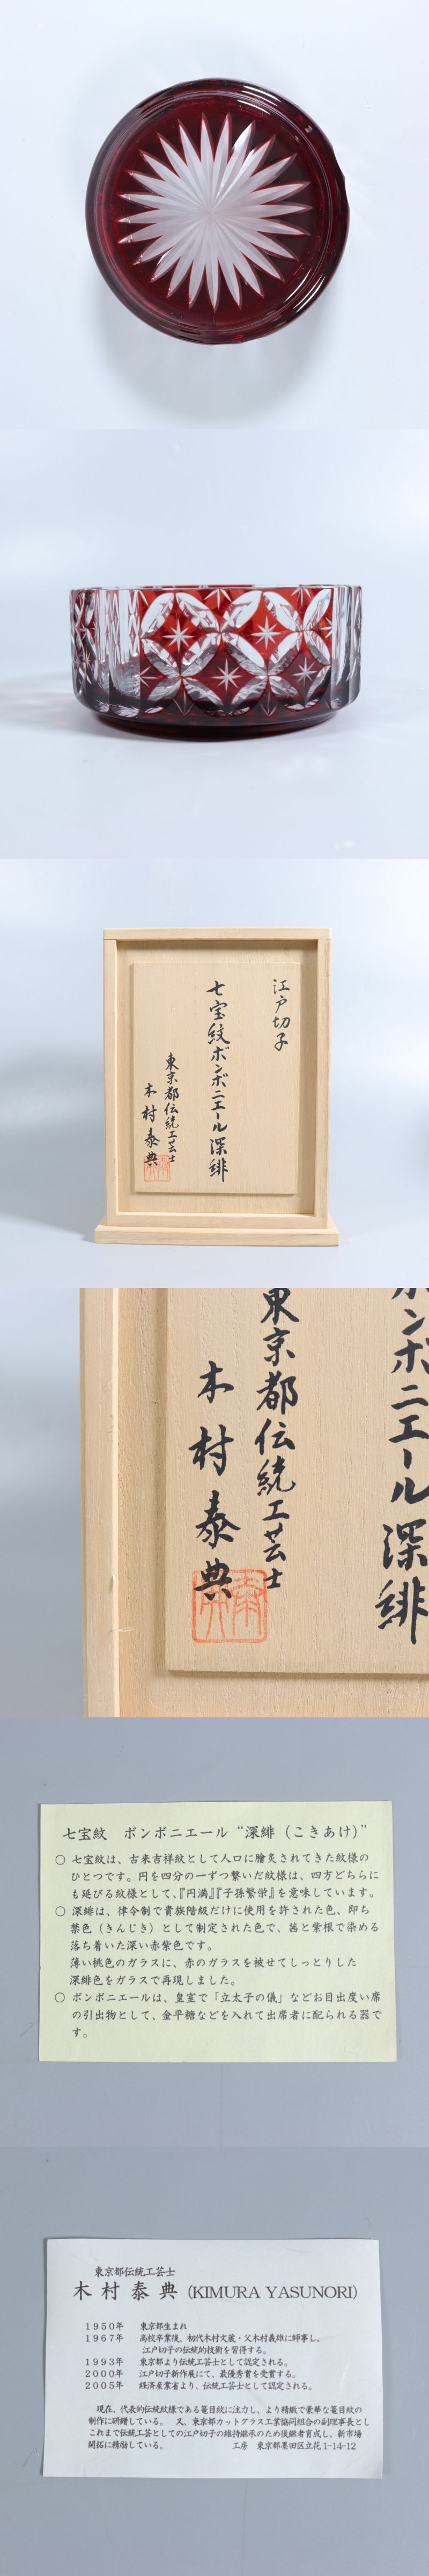 江戸切子
七宝紋ボンボニエール深緋
東京都伝統工芸士
木村泰典
ボンボニエール深緋
東京都伝統工芸士
木村泰典
七宝紋 ボンボニエール“深緋（こきあけ）”
○ 七宝紋は、古来吉祥紋として人口に膾炙されてきた紋様の
ひとつです。円を四分の一ずつ繋いだ紋様は、四方どちらに
も延びる紋様として、『円満』『子孫繁栄』を意味しています。
○ 深緋は、律令制で貴族階級だけに使用を許された色、即ち
禁色（きんじき）として制定された色で、茜と紫根で染める
落ち着いた深い赤紫色です。
薄い桃色のガラスに、赤のガラスを被せてしっとりした
深緋色をガラスで再現しました。
○ ボンボニエールは、皇室で「立太子の儀」などお目出度い席
の引出物として、金平糖などを入れて出席者に配られる器で
す。
東京都伝統工芸士
木村泰典（KIMURA YASUNORI）
1950年 東京都生まれ
1967年 高校卒業後、初代木村文蔵・父木村義雄に師事し、
江戸切子の伝統的技術を習得する。
1993年 東京都より伝統工芸士として認定される。
2000年 江戸切子新作展にて、最優秀賞を受賞する。
2005年 経済産業省より、伝統工芸士として認定される。
現在、代表的伝統紋様である篭目紋に注力し、より精緻で豪華な篭目紋の
制作に研鑽している。 又、東京都カットグラス工業協同組合の副理事長とし
これまで伝統工芸としての江戸切子の維持継承のため後継者育成し、新市場
開拓に精励している。 工房 東京都墨田区立花1-14-12